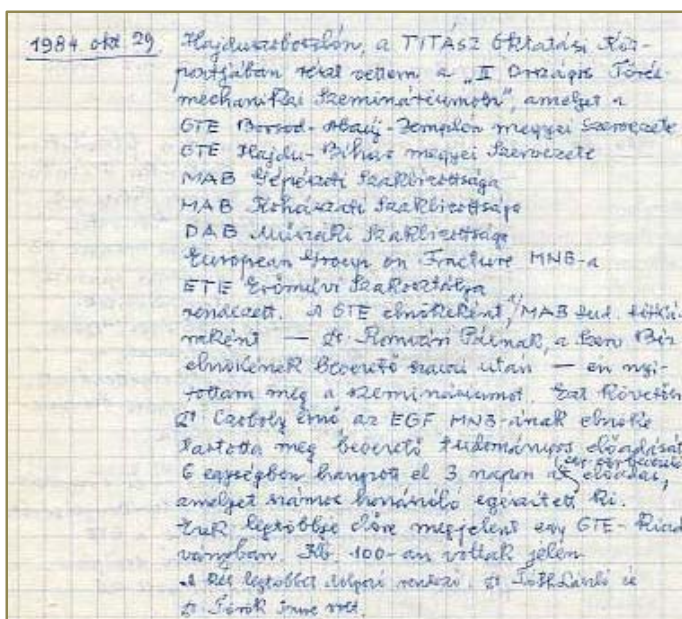 1984 okt 29. Hajduszoboszlón, a TITÁSZ Oktatási Köz-
pontjában részt vettem a „II Országos Törés
mechanikai Szemináriumon", amelyet a
GTE Borsod-Abaúj-Zemplén megyei Szervezete
GTE Hajdu-Bihar megyei Szervezete
MAB Gépészeti Szakbizottsága
MAB Kohászati Szakbizottsága
DAB Műszaki Szakbizottsága
European Group on Fracture MNB-a
ETE Erőművi Szakosztálya
rendezett. A GTE elnökeként, MAB tud. titká-
raként — Dr Romvári Pálnak, a Szerv Biz
elnökének bevezető szavai után — én nyi-
tottam meg a szemináriumot. Ezt követően
Dr Czoboly Ernő az EGF MNB-ának elnöke
tartotta meg bevezető tudományos előadását
6 egységben hangzott el 3 napon az előadás,
amelyet számos hozzászóló egészített ki.
Ezek legtöbbje előre megjelent egy GTE-Kiad
ványban. Kb. 100-an voltak jelen
A két legtöbbet rendező Dr Tóth László és
Dr Török Imre volt.